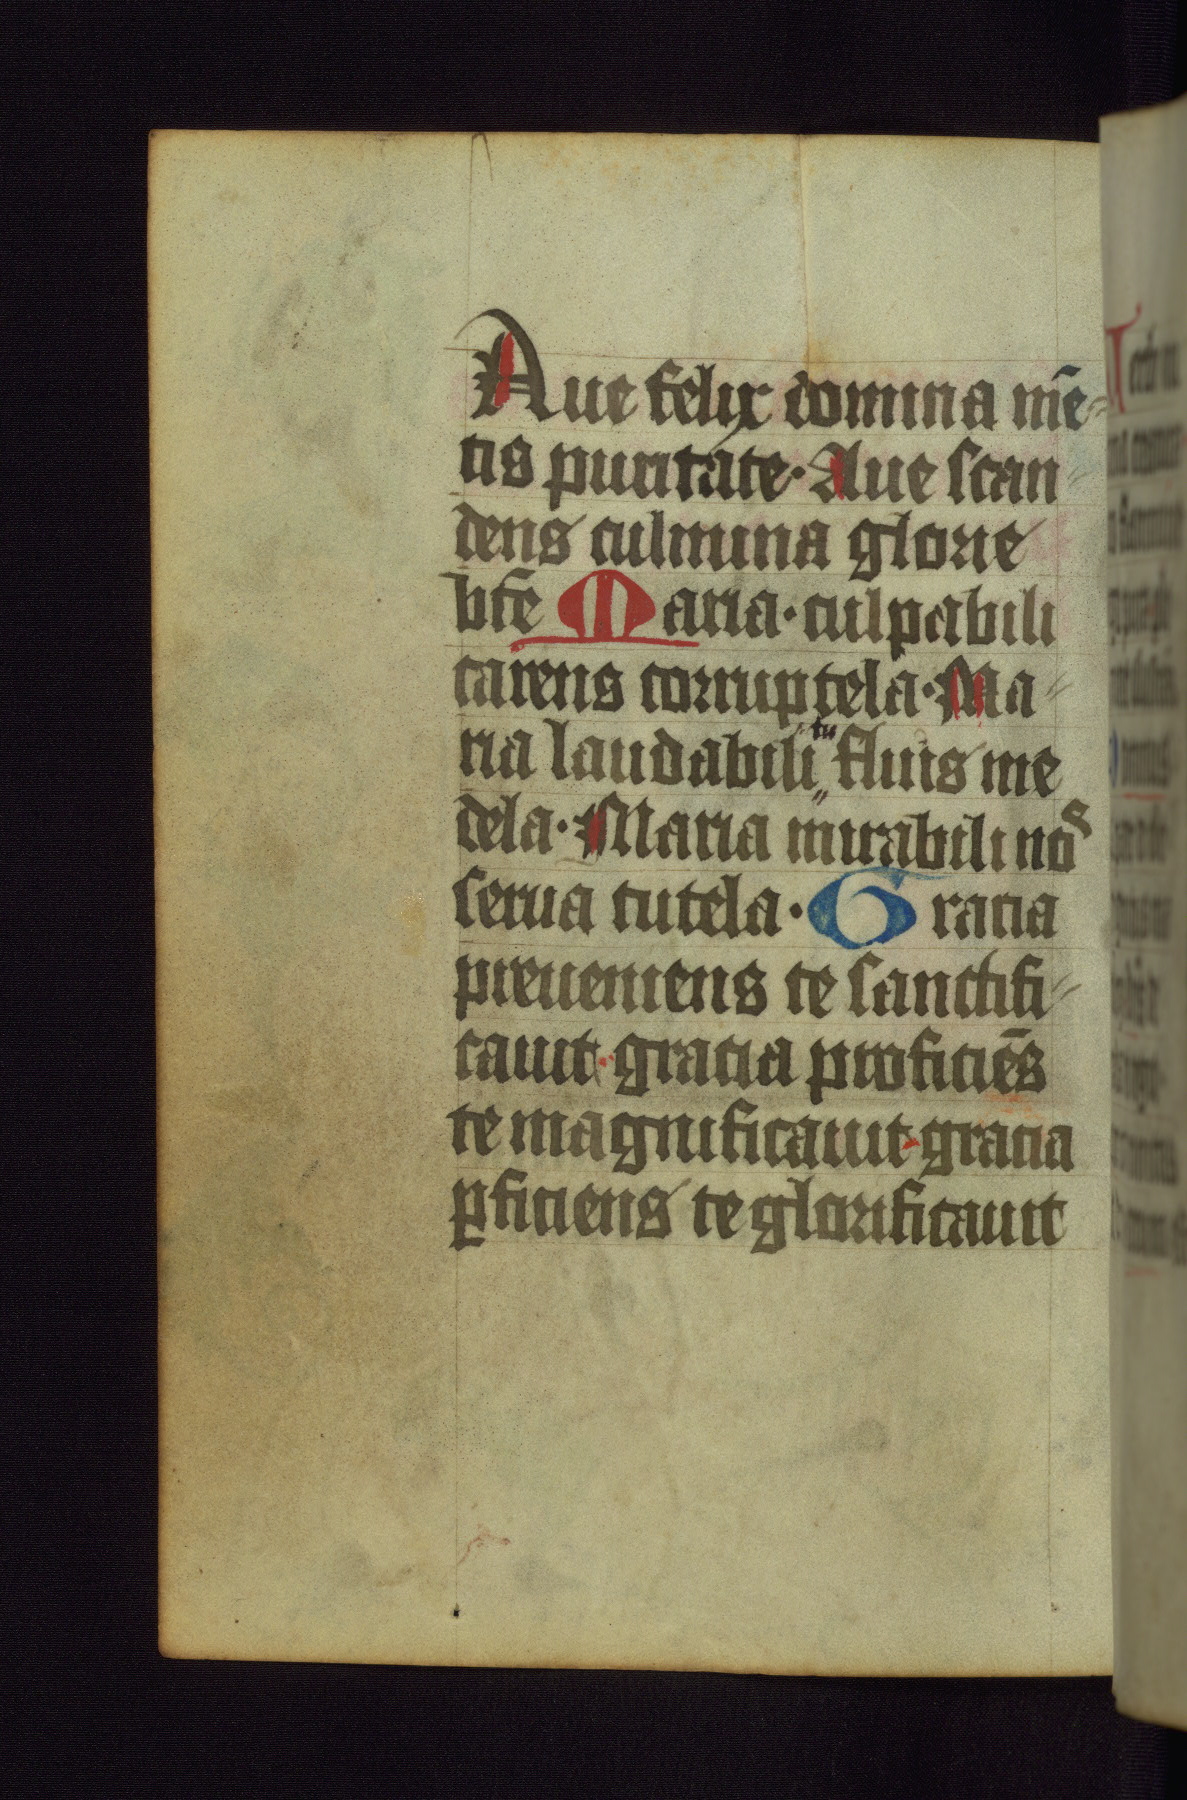 Aue felix domina mē-
tis puritate· Aue scan
dens culmina glorie
btē Maria· culpabili
carens corruptela· Ma
ria laudabili tu fluis me
dela· Maria mirabili nos
serua tutela· Gracia
preueniens te sanctifi
cauit· gracia proficiēs
te magnificauit· gracia
ꝑficiens te glorificauit